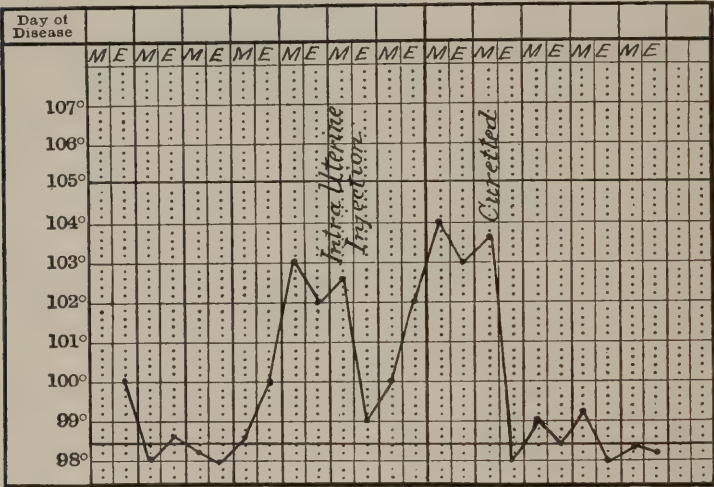 Day of
Disease
M E M E M E M E M E M E M E M E M E M E M E M E
107°
106°
105°
104°
103°
102°
101°
100°
99°
98°
Intra Uterine
Injection.
Curetted